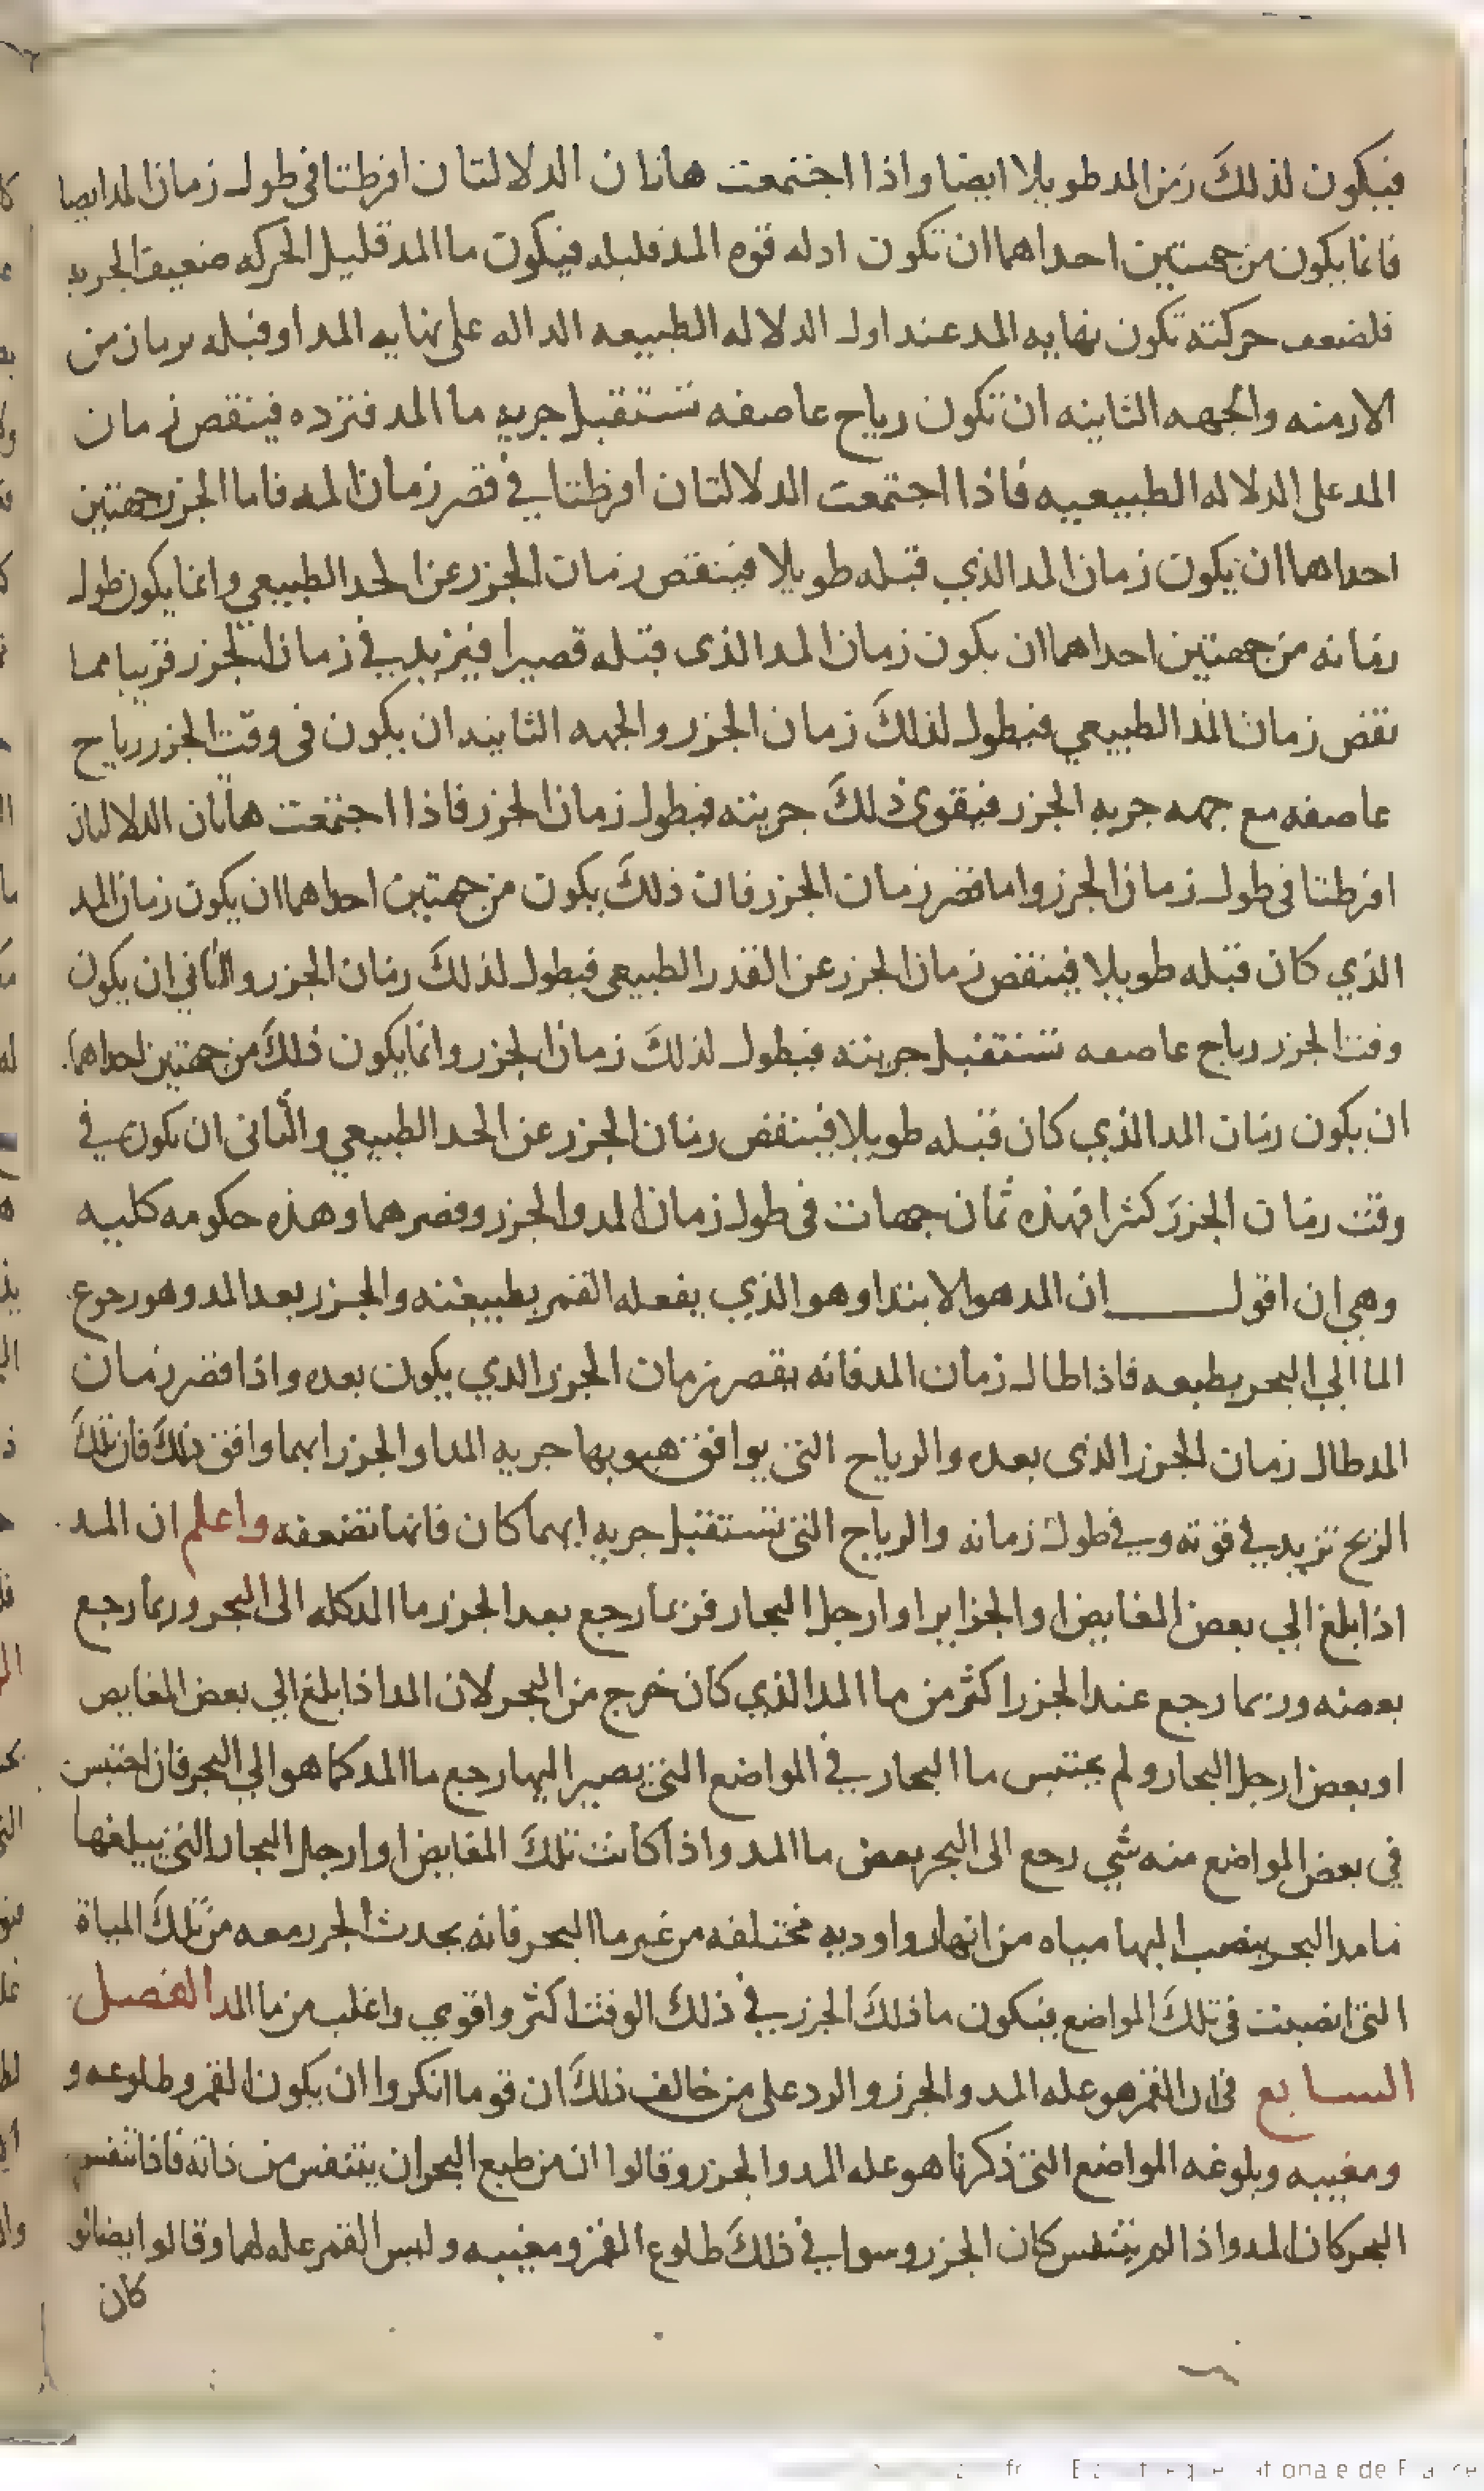 فيكون لذلك زمن المد طويلا ايضا واذا اجتمعت هاتان الدلالتان افرطتا في طول زمان المد ايضا
فانما يكون من جهتين احداهما ان تكون ادله قوه المد قليله فيكون ما المد قليل الحركه ضعيف الجريه
فلضعف حركته تكون نهايه المد عند اول الدلاله الطبيعه الداله على نهايه المد او قبله بزمان من
الازمنه والجهه الثانيه ان تكون رياح عاصفه تستقبل جريه ما المد فترده فينقص زمان
المد على الدلاله الطبيعيه فاذا اجتمعت الدلالتان افرطتا في قصر زمان المد فاما الجزر جهتين
احداهما ان يكون زمان المد الذي قبله طويلا فينقص زمان الجزر عن الحد الطبيعي وانما يكون طول
زمانه من جهتين احداهما ان يكون زمان المد الذي قبله قصيرا فيزيد في زمان الجزر قريبا مما
نقص زمان المد الطبيعي فيطول لذلك زمان الجزر والجهه الثانيه ان يكون في وقت الجزر رياح
عاصفه مع جهه جريه الجزر فيقوى ذلك جريته فيطول زمان الجزر فاذا اجتمعت هاتان الدلالتان
افرطتا في طول زمان الجزر واما قصر زمان الجزر فان ذلك يكون من جهتين احداهما ان يكون زمان المد
الذي كان قبله طويلا فينقص زمان الجزر عن القدر الطبيعي فيطول لذلك زمان الجزر والثاني ان يكون
وقت الجزر رياح عاصفه تستقبل جريته فيطول لذلك زمان الجزر وانما يكون ذلك من جهتين احداهما
ان يكون زمان المد الذي كان قبله طويلا فينقص زمان الجزر عن الحد الطبيعي والثاني ان يكون في
وقت زمان الجزر كثرا فهذه ثمان جهات في طول زمان المد والجزر وقصرهما وهذه حكومه كليه
وهي ان اقول ان المد هو الابتدا وهو الذي يفعله القمر بطبيعته والجزر بعد المد وهو رجوع
الما الي البحر بطبعه فاذا طال زمان المد فانه يقصر زمان الجزر الذي يكون بعده واذا قصر زمان
المد طال زمان الجزر الذي بعده والرياح التي يوافق هبوبها جريه المد او الجزر ايهما وافق ذلك فان تلك
الريح تزيد في قوته وفي طول زمانه والرياح التي تستقبل جريه ايهما كان فانها تضعفه واعلم ان المد
اذا بلغ الي بعض المغايض او الجزاير او ارجل البحار فربما رجع بعد الجزر ما المد كله الى البحر وربما رجع
بعضه وربما رجع عند الجزر اكثر من ما المد الذي كان خرج من البحر لان المد اذا بلغ الي بعض المغايض
او بعض ارجل البحار ولم يحتبس ما البحار في المواضع التي يصير اليها رجع ما المد كما هو الي البحر فان احتبس
في بعض المواضع منه شي رجع الى البحر بعض ما المد واذا كانت تلك المغايض او ارجل البحار التي يبلغها
ما مد البحر ينصب اليها مياه من انهار واوديه مختلفه من غير ما البحر فانه يحدث الجزر معه من تلك المياة
التي انصبت في تلك المواضع فيكون ما ذلك الجزر في ذلك الوقت اكثر واقوي واغلب من ما المد الفصل
السابع في ان القمر هو عله المد والجزر والرد على من خالف ذلك ان قوما انكروا ان يكون القمر وطلوعه و
ومغيبه وبلوغه المواضع التي ذكرنا هو عله المد والجزر وقالوا ان من طبع البحر ان يتنفس من ذاته فاذا تنفس
البحر كان المد واذا لم يتنفس كان الجزر وسوا في ذلك طلوع القمر ومغيبه وليس القمر عله لهما وقالوا ايضا لو
كان